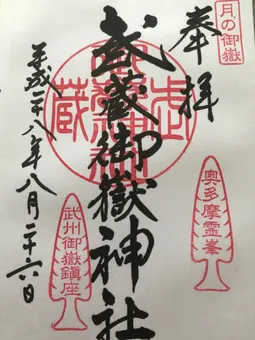 月の御嶽
奉拝
奥多摩霊峯
武蔵御嶽神社
武州御嶽鎮座
平成二十八年八月二十六日